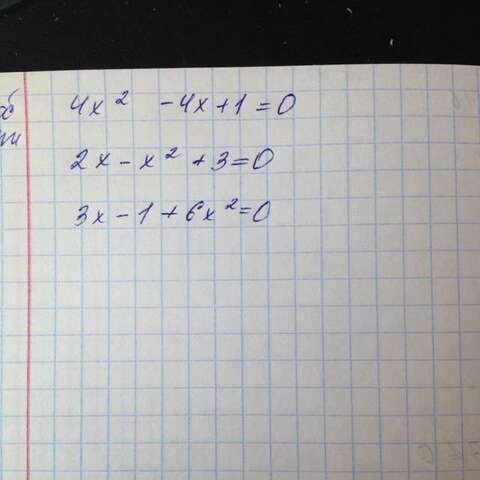 4x² -4x+1=0
2x-x²+3=0
3x-1+6x²=0